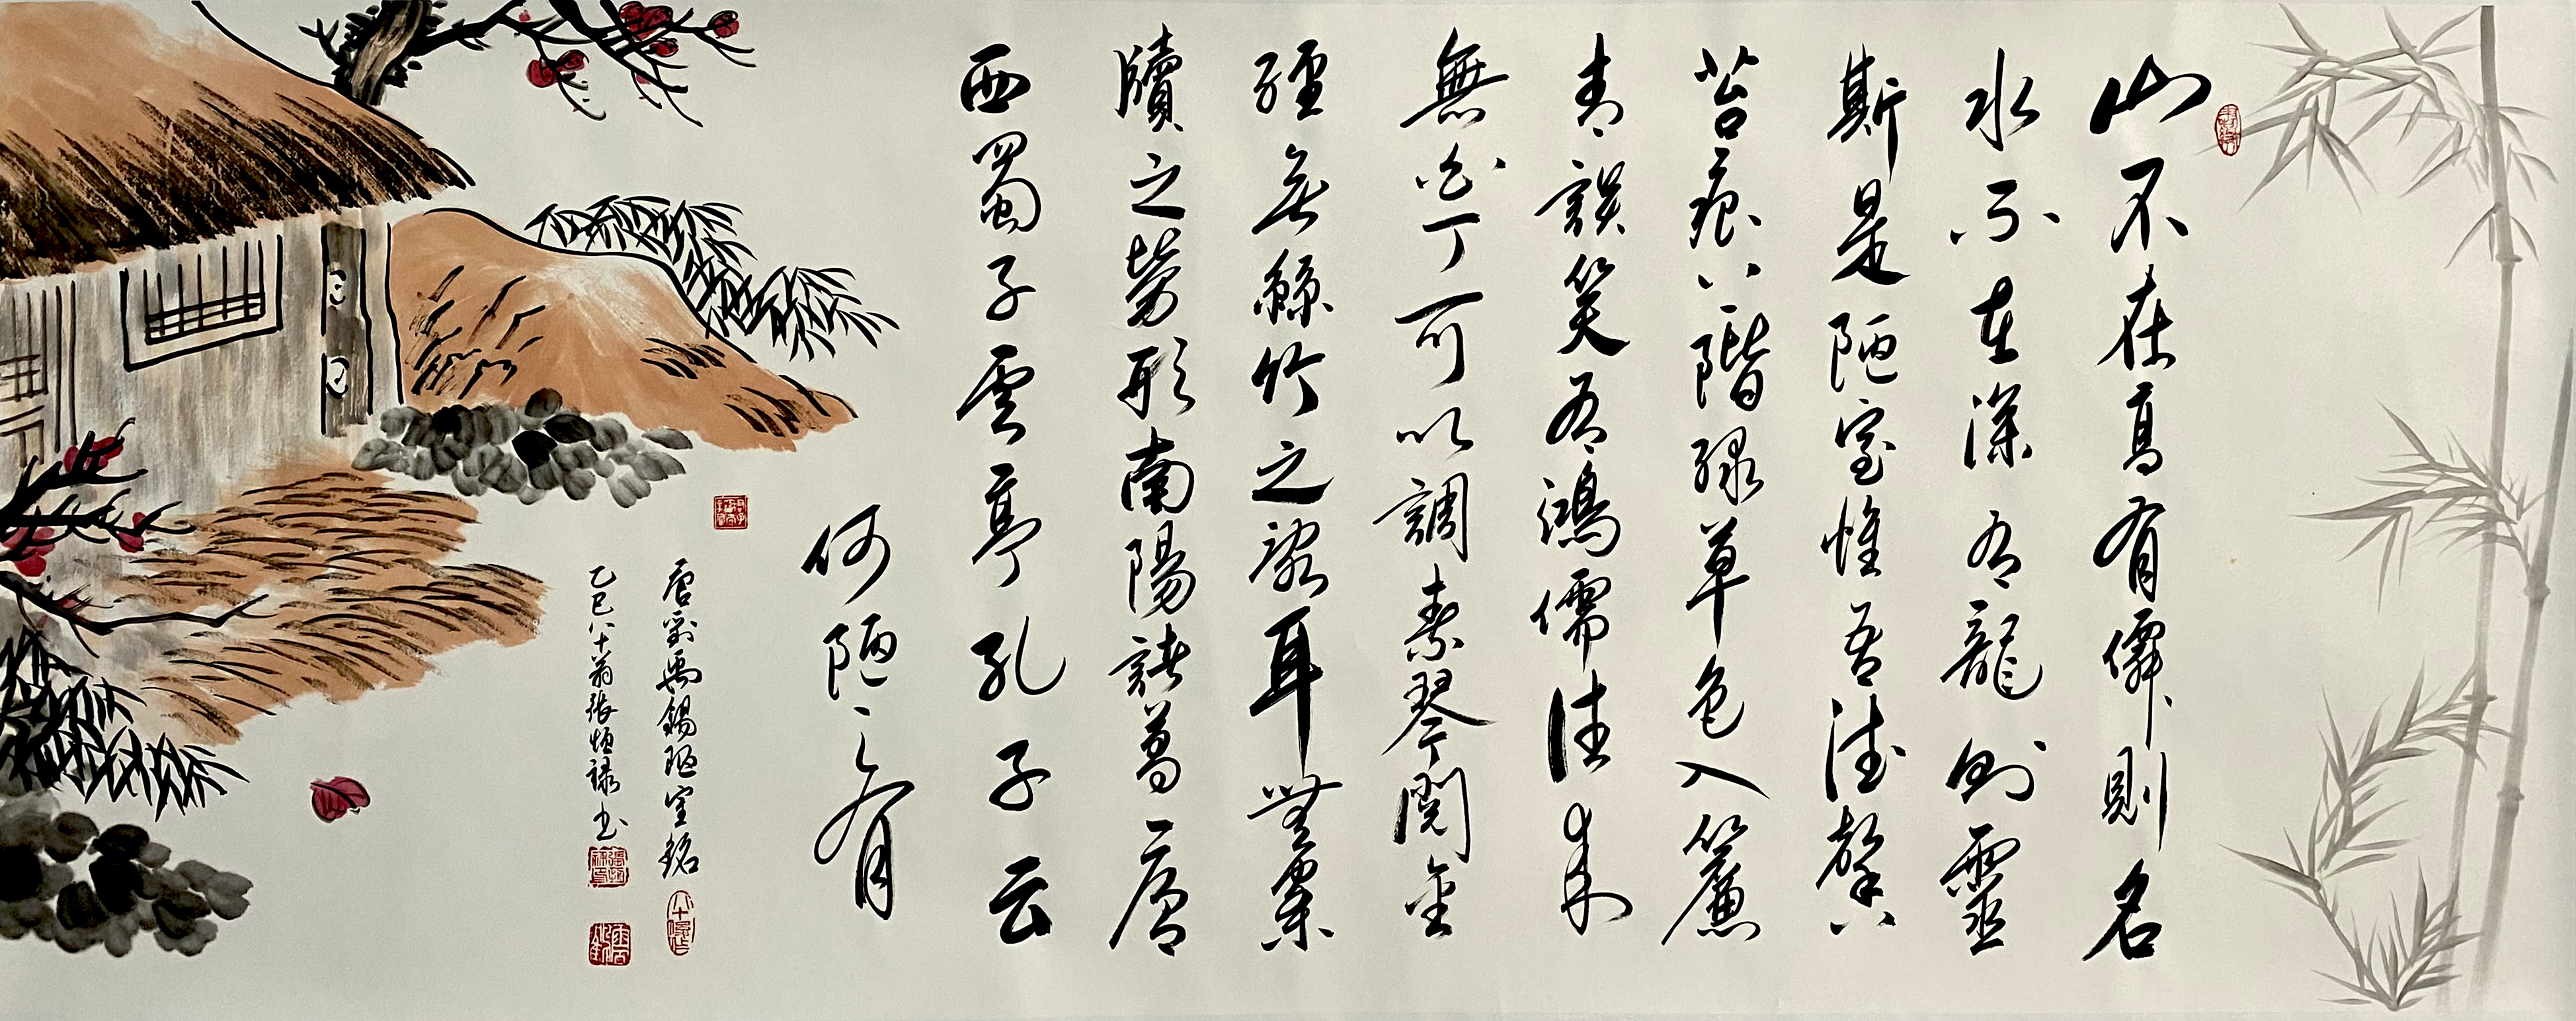 山不在高有僊則名
水不在深有龍則靈
斯是陋室惟吾德馨
苔痕上階緑草色入簾
青談笑有鴻儒往來
無白丁可以調素琴閱金
經無絲竹之亂耳無案
牘之勞形南陽諸葛廬
西蜀子雲亭孔子云
何陋之有
唐劉禹錫陋室銘
乙巳八十翁張恒禄书